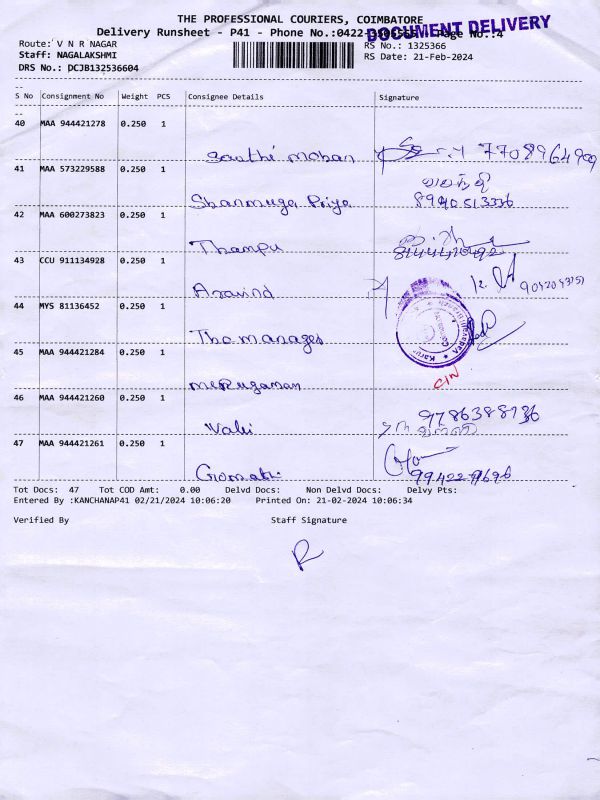 THE PROFESSIONAL COURIERS, COIMBATORE
DOCUMENT DELIVERY
Delivery Runsheet - P41 - Phone No.:0422- Page No.:4
Route: V N R NAGAR RS No.: 1325366
Staff: NAGALAKSHMI RS Date: 21-Feb-2024
DRS No.: DCJB132536604
--
S No Consignment No Weight PCS Consignee Details Signature
--
40 MAA 944421278 0.250 1
Santhi mohan 7708964999
41 MAA 573229588 0.250 1
Shanmuga Priya 8940513336
42 MAA 600273823 0.250 1
Thampu
43 CCU 911134928 0.250 1
Aravind
44 MYS 81136452 0.250 1
The manager
45 MAA 944421284 0.250 1
merugaman
46 MAA 944421260 0.250 1
Valli 9786388136
47 MAA 944421261 0.250 1
Gomathi
Tot Docs: 47 Tot COD Amt: 0.00 Delvd Docs: Non Delvd Docs: Delvy Pts:
Entered By :KANCHANAP41 02/21/2024 10:06:20 Printed On: 21-02-2024 10:06:34
Verified By Staff Signature